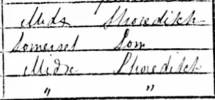 Midx Shoreditch
Somerset Som
Midx Shoreditch
" "